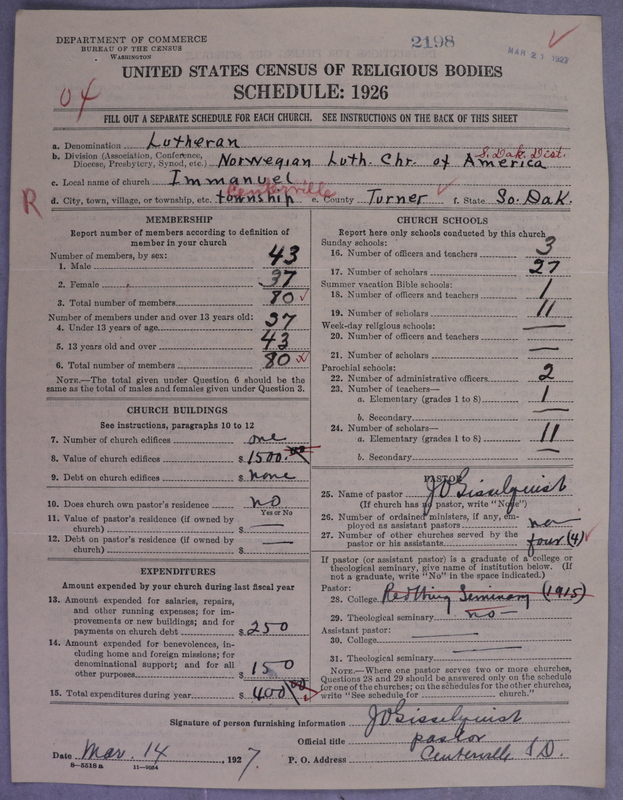 DEPARTMENT OF COMMERCE
BUREAU OF THE CENSUS
WASHINGTON
2198
MAR 21 1927
UNITED STATES CENSUS OF RELIGIOUS BODIES
SCHEDULE: 1926
04
FILL OUT A SEPARATE SCHEDULE FOR EACH CHURCH. SEE INSTRUCTIONS ON THE BACK OF THIS SHEET
a. Denomination Lutheran
b. Division (Association, Conference, Diocese, Presbytery, Synod, etc.) Norwegian Luth. Chr. of America S. Dak. Dist.
c. Local name of church Immanuel
R
d. City, town, village, or township, etc. township Centerville e. County Turner f. State So. Dak.
MEMBERSHIP
Report number of members according to definition of
member in your church
Number of members, by sex:
1. Male 43
2. Female 37
3. Total number of members 80
Number of members under and over 13 years old:
4. Under 13 years of age 37
5. 13 years old and over 43
6. Total number of members 80
NOTE.—The total given under Question 6 should be the
same as the total of males and females given under Question 3.
CHURCH BUILDINGS
See instructions, paragraphs 10 to 12
7. Number of church edifices one
8. Value of church edifices $ 1500.00
9. Debt on church edifices $ none
10. Does church own pastor's residence? no
Yes or No
11. Value of pastor's residence (if owned by
church) $ —
12. Debt on pastor's residence (if owned by
church) $ —
EXPENDITURES
Amount expended by your church during last fiscal year
13. Amount expended for salaries, repairs,
and other running expenses; for im-
provements or new buildings; and for
payments on church debt $ 250
14. Amount expended for benevolences, in-
cluding home and foreign missions; for
denominational support; and for all
other purposes 150
15. Total expenditures during year $ 400.00
CHURCH SCHOOLS
Report here only schools conducted by this church
Sunday schools:
16. Number of officers and teachers 3
17. Number of scholars 27
Summer vacation Bible schools:
18. Number of officers and teachers 1
19. Number of scholars 11
Week-day religious schools:
20. Number of officers and teachers —
21. Number of scholars —
Parochial schools:
22. Number of administrative officers 2
23. Number of teachers—
a. Elementary (grades 1 to 8) 1
b. Secondary —
24. Number of scholars—
a. Elementary (grades 1 to 8) 11
b. Secondary —
PASTOR
25. Name of pastor JO Gisselquist
(If church has no pastor, write "None")
26. Number of ordained ministers, if any, em-
ployed as assistant pastors no
27. Number of other churches served by the
pastor or his assistants four (4)
If pastor (or assistant pastor) is a graduate of a college or
theological seminary, give name of institution below. (If
not a graduate, write "No" in the space indicated.)
Pastor:
28. College Red Wing Seminary (1915)
29. Theological seminary no
Assistant pastor:
30. College —
31. Theological seminary —
NOTE.—Where one pastor serves two or more churches,
Questions 28 and 29 should be answered only on the schedule
for one of the churches; on the schedules for the other churches,
write "See schedule for church."
Signature of person furnishing information JO Gisselquist
Official title pastor
Date Mar. 14, 1927. P. O. Address Centerville S D.
8—5518 a 11—9034